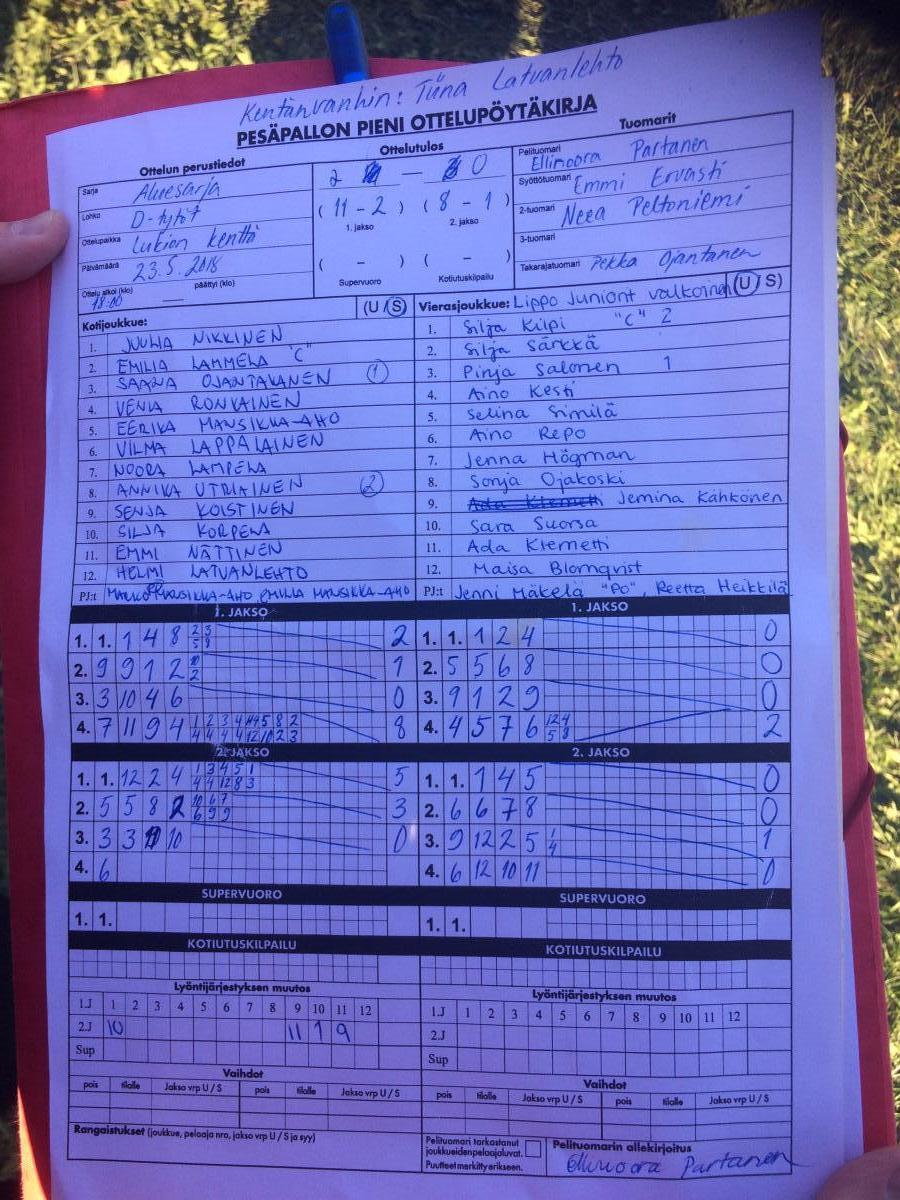 Kentänvanhin: Tiina Latvanlehto
PESÄPALLON PIENI OTTELUPÖYTÄKIRJA
Ottelun perustiedot
Sarja Aluesarja
Lohko D-tytöt
Ottelupaikka Lukion kenttä
Päivämäärä 23.5.2018
Ottelu alkoi (klo) 18:00 päättyi (klo)
Ottelutulos
2 — 0
( 11 - 2 ) ( 8 - 1 )
1. jakso 2. jakso
( - ) ( - )
Supervuoro Kotiutuskilpailu
Tuomarit
Pelituomari Ellinoora Partanen
Syöttötuomari Emmi Ervasti
2-tuomari Neea Peltoniemi
3-tuomari
Takarajatuomari Pekka Ojantanen
Kotijoukkue: (U / S)
1. JUULIA NIKKINEN
2. EMILIA LAMMELA "C"
3. SAANA OJANTAKANEN 1
4. VENLA RONKAINEN
5. EERIKA MANSIKKA-AHO
6. VILMA LAPPALAINEN
7. NOORA LAMPELA
8. ANNIKA UTRIAINEN 2
9. SENJA KOISTINEN
10. SILJA KORPELA
11. EMMI NÄTTINEN
12. HELMI LATVANLEHTO
PJ:t MANSIKKA-AHO EMILIA MANSIKKA-AHO
Vierasjoukkue: Lippo Juniorit valkoinen (U / S)
1. Silja Kilpi "C" 2
2. Silja Särkkä
3. Pinja Salonen 1
4. Aino Kesti
5. Selina Similä
6. Aino Repo
7. Jenna Högman
8. Sonja Ojakoski
9. Ada Klemetti Jemina Kähkönen
10. Sara Suorsa
11. Ada Klemetti
12. Maisa Blomqvist
PJ:t Jenni Mäkelä "PO", Reetta Heikkilä
1. JAKSO
1. 1. 1 4 8 2 3 5 9 2
2. 9 9 1 2 10 2 1
3. 3 10 4 6 0
4. 7 11 9 4 8
1. JAKSO
1. 1. 1 2 4 0
2. 5 5 6 8 0
3. 9 1 2 9 0
4. 4 5 7 6 12 4 5 8 2
2. JAKSO
1. 1. 12 2 4 1 3 4 5 1 4 4 12 8 3 5
2. 5 5 8 2 10 6 7 6 9 9 3
3. 3 3 10 0
4. 6
2. JAKSO
1. 1. 1 4 5 0
2. 6 6 7 8 0
3. 9 12 2 5 1 4 1
4. 6 12 10 11 0
SUPERVUORO
1. 1.
SUPERVUORO
1. 1.
KOTIUTUSKILPAILU
KOTIUTUSKILPAILU
Lyöntijärjestyksen muutos
1.J 1 2 3 4 5 6 7 8 9 10 11 12
2.J 10 11 1 9
Sup
Lyöntijärjestyksen muutos
1.J 1 2 3 4 5 6 7 8 9 10 11 12
2.J
Sup
Vaihdot
pois tilalle Jakso vrp U / S pois tilalle Jakso vrp U / S
Vaihdot
pois tilalle Jakso vrp U / S pois tilalle Jakso vrp U / S
Rangaistukset (joukkue, pelaaja nro, jakso vrp U / S ja syy)
Pelituomari tarkastanut
joukkueidenpelaajaluvat.
Puutteet merkitty erikseen.
Pelituomarin allekirjoitus
Ellinoora Partanen